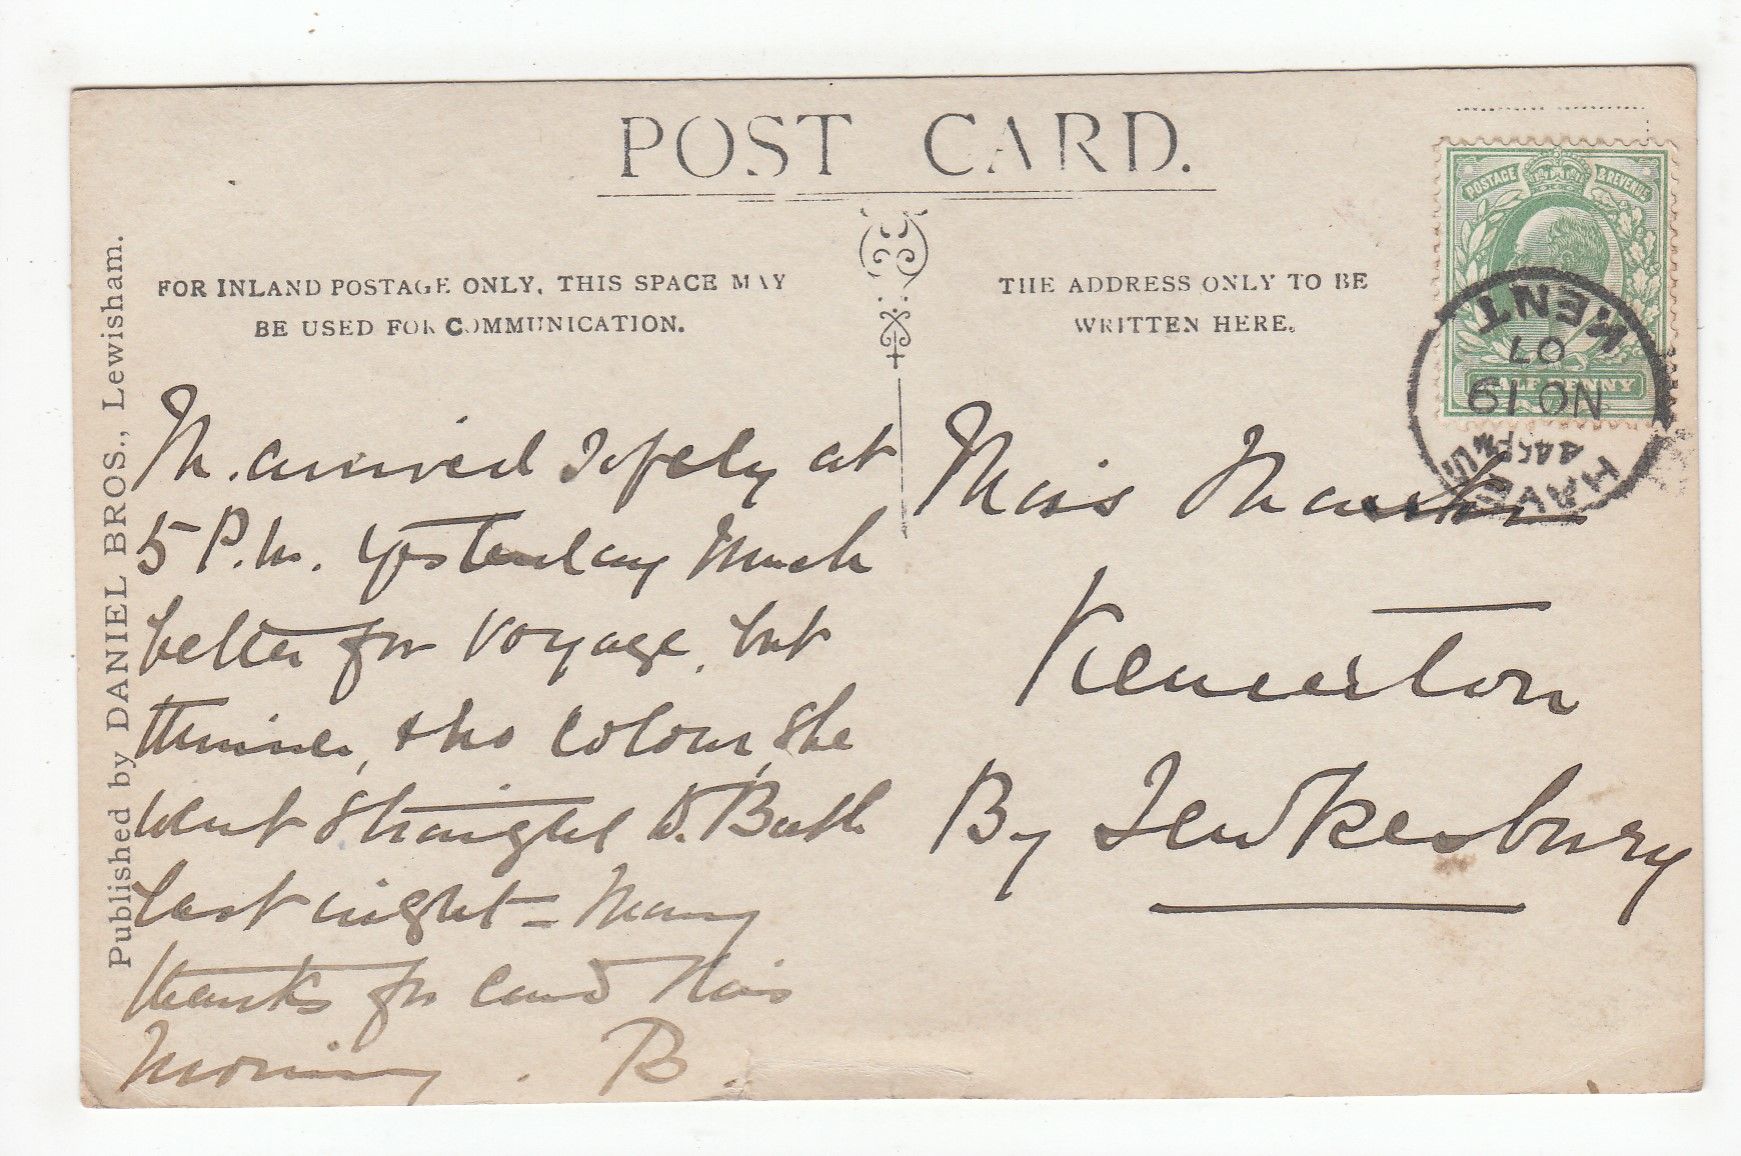 POST CARD.
FOR INLAND POSTAGE ONLY, THIS SPACE MAY
BE USED FOR COMMUNICATION.
THE ADDRESS ONLY TO BE
WRITTEN HERE.
POSTAGE & REVENUE
HALFPENNY
KENT
07
NO 19
Published by DANIEL BROS., Lewisham.
M. arrived safely at
5 P.M. yesterday Much
better for voyage, but
thinner, & no colour, She
went straight to Bath
last night = Many
thanks for card this
morning. B.
Miss
Kemerton
By Tewkesbury